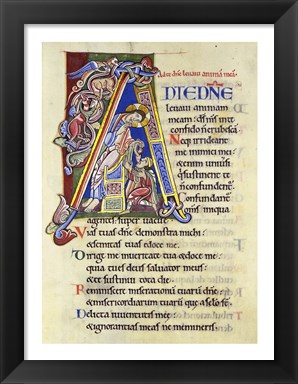 Ad te dñe levavi animā meā.
A
D TE DÑE
levavi animam
meam: ds̄ ms̄ in te
confido n̄ erubescā.
Neq; irrideant
me inimici mei:
etenim univsi
q̇ sustinent te n̄
confundent᷑.
Confundant᷑
om̄s iniqua
agentes supervacue.
Vias tuas dn̄e demonstra michi:
& semitas tuas edoce me.
Dirige me in veritate tua & doce me:
quia tu es deus salvator meus
& te sustinui tota die.
Reminiscere miserationū tuarū dn̄e:
& misericordiarum tuarū que a sc̄lo s̄.
Delicta iuventutis mee:
& ignorantias meas ne memineris